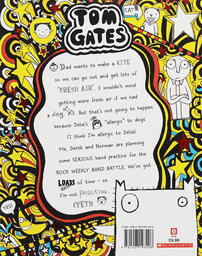 TOM
GATES
CAT
Dad wants to make a KITE
so we can go out and get lots of
"FRESH AIR". I wouldn't mind
getting more fresh air if we had
a dog. But that's not going to happen
because Delia's "allergic" to dogs
(I think I'm allergic to Delia).
Me, Derek and Norman are planning
some SERIOUS band practice for the
ROCK WEEKLY BAND BATTLE. We've got
LOADS of time - so
I'm not PANICKING...
(YET!)
£6.99
SCHOLASTIC